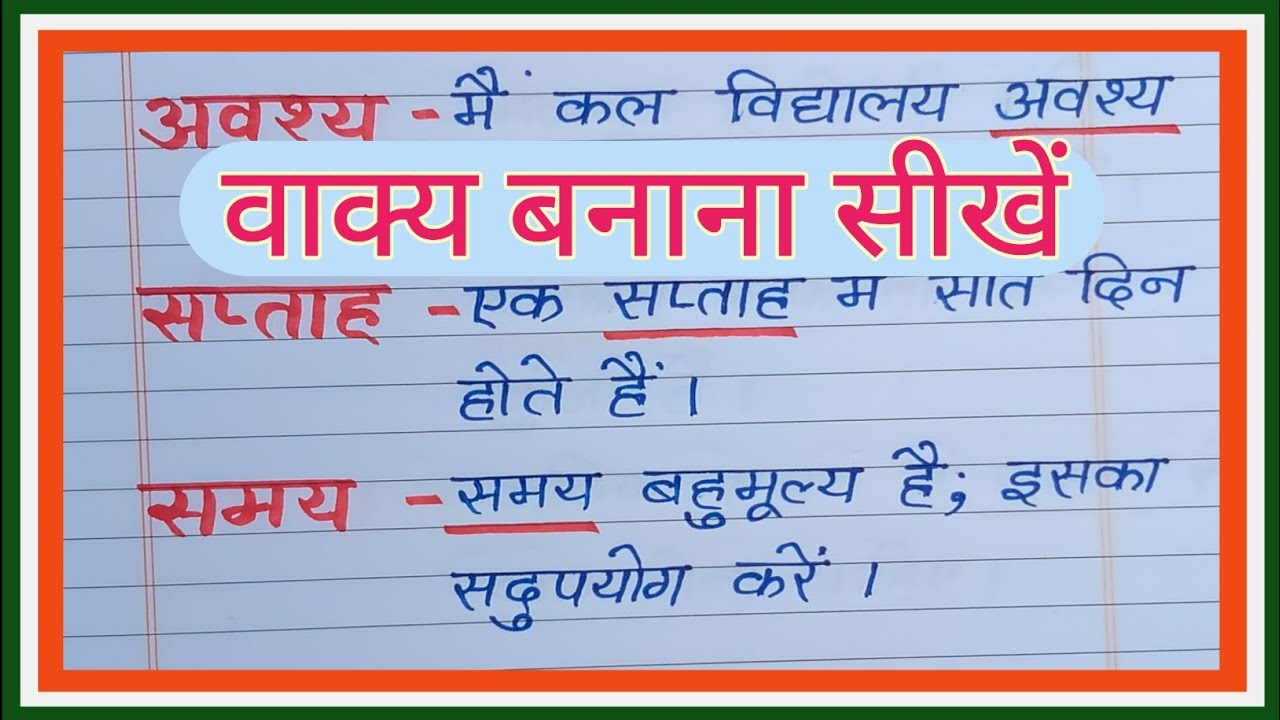 अवश्य - मैं कल विद्यालय अवश्य
वाक्य बनाना सीखें
सप्ताह - एक सप्ताह म सात दिन
होते हैं ।
समय - समय बहुमूल्य है; इसका
सदुपयोग करें ।